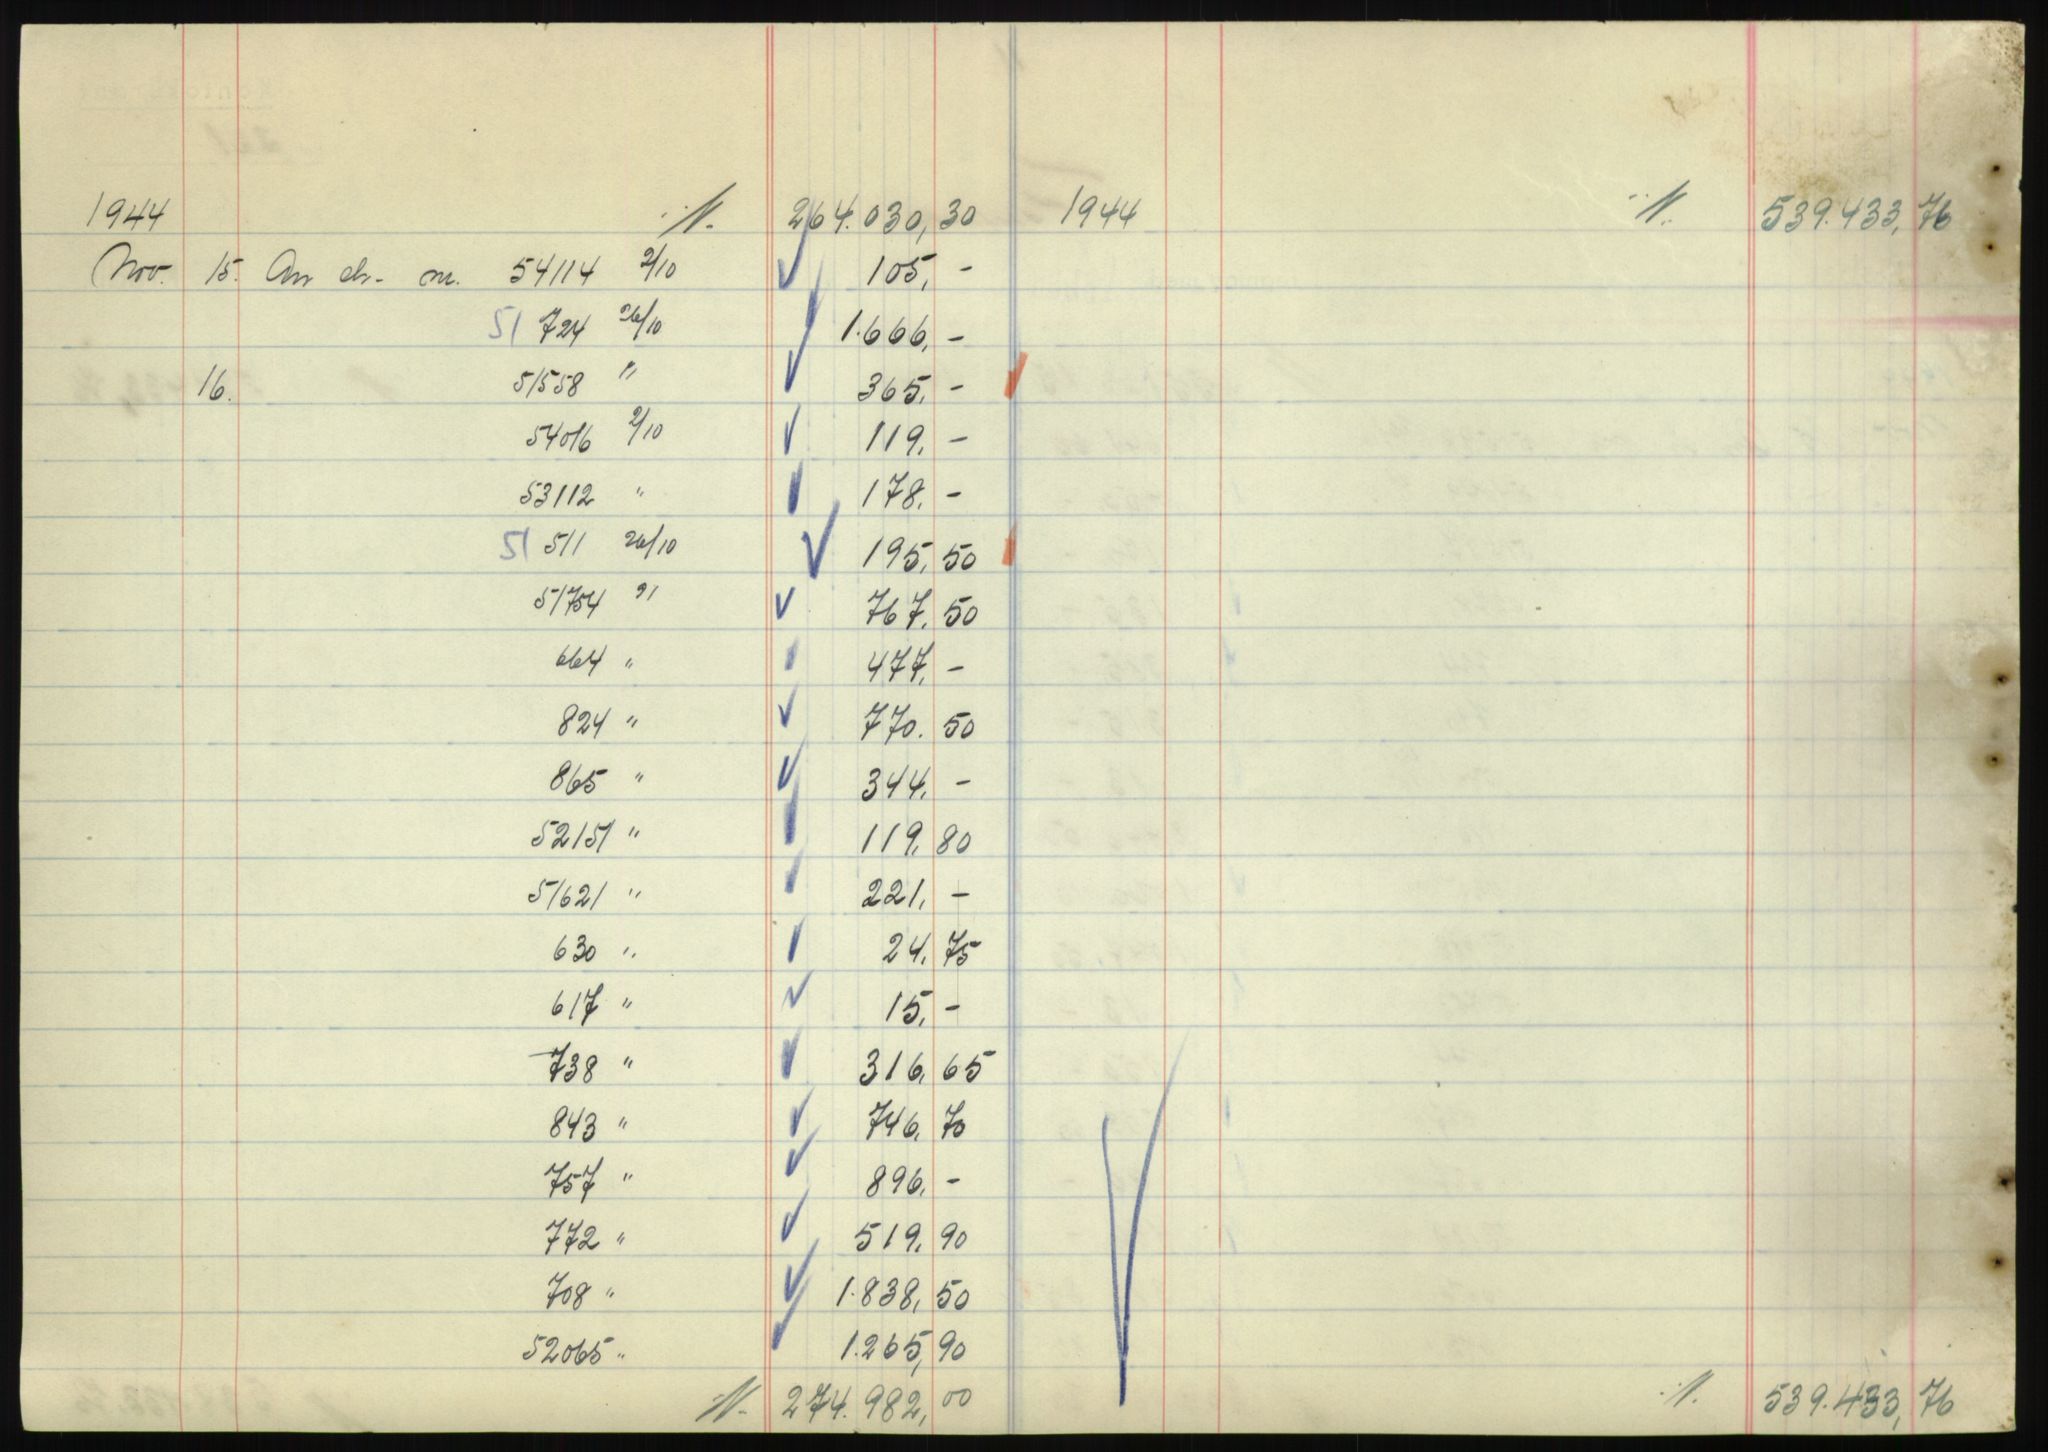 1944 ·/. 264.030,30 1944 ·/. 539.433,76
Nov. 15. An ch. m. 54114 2/10 105,-
51724 26/10 1.666,-
16. 51558 " 365,-
54016 2/10 119,-
53112 " 178,-
51511 26/10 195,50
51754 " 767,50
664 " 477,-
824 " 770.50
865 " 344,-
52151 " 119,80
51621 " 221,-
630 " 24,75
617 " 15,-
738 " 316,65
843 " 746,70
757 " 896,-
772 " 519,90
708 " 1.838,50
52065 " 1.265,90
·/. 274.982,00 ·/. 539.433,76